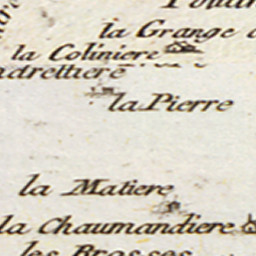 la Grange
la Coliniere
la Pierre
la Matiere
la Chaumandiere
les Brosses